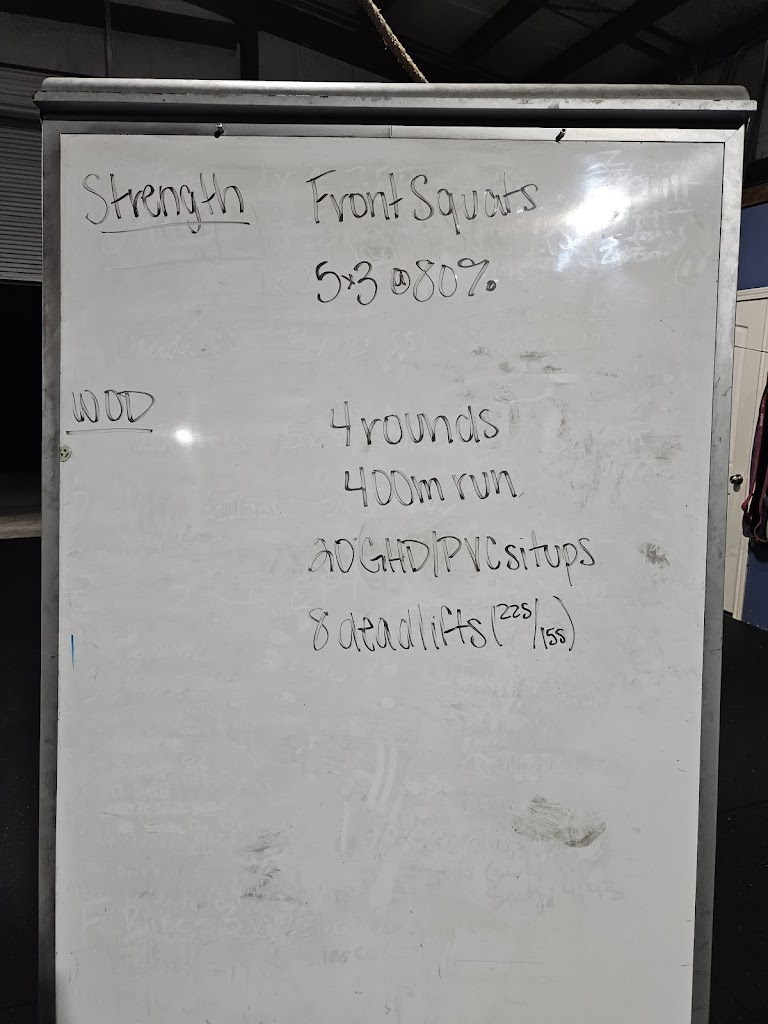 Strength Front Squats
5x3 @ 80%
WOD
4 rounds
400m run
20 GHD/PVC situps
8 deadlifts (225/155)